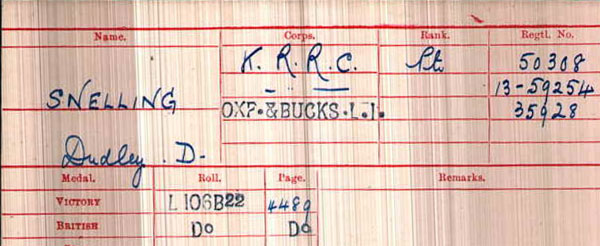 Name. Corps. Rank. Regtl. No.
K. R. R. C. Pte 50308
" 13-59254
SNELLING OXF. & BUCKS. L.I. 35928
Dudley. D.
Medal. Roll. Page. Remarks.
VICTORY L106B22 4489
BRITISH Do Do